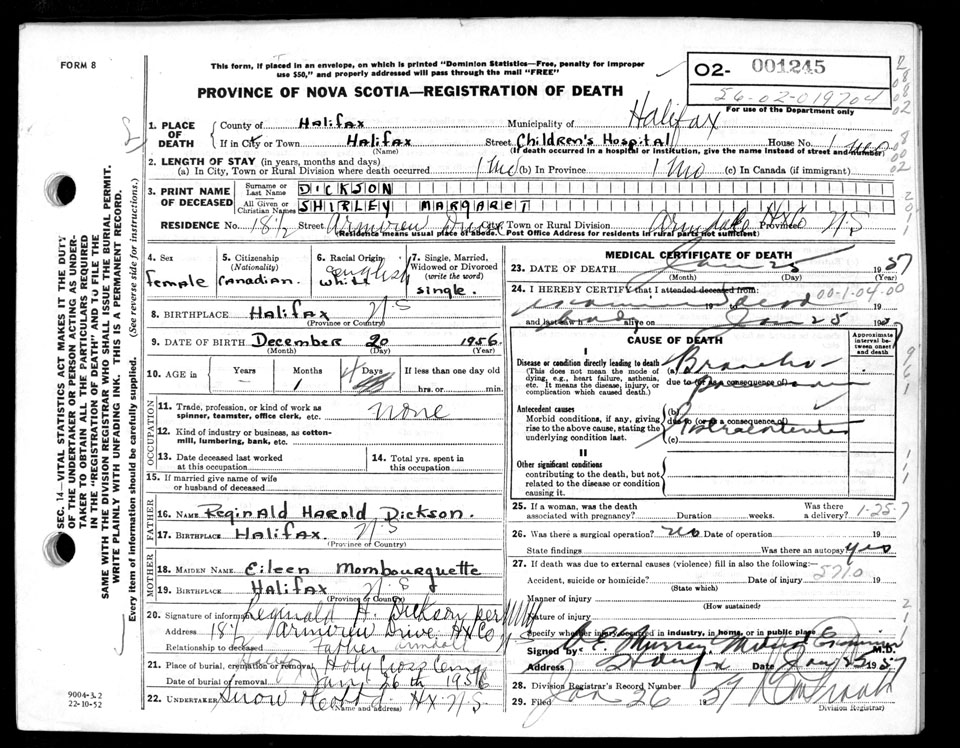 FORM 8
This form, if placed in an envelope, on which is printed "Dominion Statistics—Free, penalty for improper
use $50," and properly addressed will pass through the mail "FREE"
PROVINCE OF NOVA SCOTIA—REGISTRATION OF DEATH
O2- 001245
56-02-019704
For use of the Department only
SEC. 14—VITAL STATISTICS ACT MAKES IT THE DUTY
OF THE UNDERTAKER OR PERSON ACTING AS UNDER-
TAKER TO OBTAIN ALL THE PARTICULARS REQUIRED
IN THE "REGISTRATION OF DEATH" AND TO FILE THE
SAME WITH THE DIVISION REGISTRAR WHO SHALL ISSUE THE BURIAL PERMIT.
WRITE PLAINLY WITH UNFADING INK. THIS IS A PERMANENT RECORD.
Every item of information should be carefully supplied. (See reverse side for instructions.)
1. PLACE OF DEATH
County of Halifax Municipality of Halifax
If in City or Town Halifax Street Children's Hospital House No.
(Name) (If death occurred in a hospital or institution, give the name instead of street and number)
2. LENGTH OF STAY (in years, months and days)
(a) In City, Town or Rural Division where death occurred 1 Mo (b) In Province 1 Mo (c) In Canada (if immigrant) 1 Mo
3. PRINT NAME OF DECEASED
Surname or Last Name DICKSON
All Given or Christian Names SHIRLEY MARGARET
RESIDENCE No. 18½ Street Armview Drive City, Town or Rural Division Armdale Hx Co Province N S
(Residence means usual place of abode. Post Office Address for residents in rural parts not sufficient)
4. Sex female
5. Citizenship (Nationality) Canadian.
6. Racial Origin English white
7. Single, Married, Widowed or Divorced (write the word) single.
8. BIRTHPLACE Halifax N S
(Province or Country)
9. DATE OF BIRTH December 20 1956
(Month) (Day) (Year)
10. AGE in Years Months Days If less than one day old
1 hrs. or min.
OCCUPATION
11. Trade, profession or kind of work as
spinner, teamster, office clerk, etc. none
12. Kind of industry or business, as cotton-
mill, lumbering, bank, etc.
13. Date deceased last worked
at this occupation
14. Total yrs. spent in
this occupation
15. If married give name of wife
or husband of deceased
FATHER
16. NAME Reginald Harold Dickson.
17. BIRTHPLACE Halifax. N S
(Province or Country)
MOTHER
18. MAIDEN NAME Eileen Mombourquette
19. BIRTHPLACE Halifax N S
(Province or Country)
20. Signature of informant Reginald H. Dickson per
Address 18½ Armview Drive, Hx Co N S
Relationship to deceased Father Armdale
21. Place of burial, cremation or removal Holy Cross Cem
Date of burial or removal Jan 26th 1956
22. UNDERTAKER Snow & Co Ltd Hx N.S.
(Name and address)
9004-3.2
22-10-52
MEDICAL CERTIFICATE OF DEATH
23. DATE OF DEATH Jan 25 1957
(Month) (Day) (Year)
24. I HEREBY CERTIFY that I attended deceased from:
examined dead 00-1-04-00
19 to 19
and last saw h alive on Jan 25 1957
body
CAUSE OF DEATH
Approximate interval between onset and death
I
Disease or condition directly leading to death
(This does not mean the mode of
dying, e.g., heart failure, asthenia,
etc. It means the disease, injury, or
complication which caused death.)
(a) Broncho-
due to (or as a consequence of) pneumonia
Antecedent causes
Morbid conditions, if any, giving
rise to the above cause, stating the
underlying condition last.
(b)
due to (or as a consequence of)
(c)
II
Other significant conditions
contributing to the death, but not
related to the disease or condition
causing it.
25. If a woman, was the death
associated with pregnancy? Duration weeks. Was there a delivery? 1-25-7
26. Was there a surgical operation? no Date of operation 19
State findings Was there an autopsy? yes
27. If death was due to external causes (violence) fill in also the following:
Accident, suicide or homicide? Date of injury 5710 19
(State which)
Manner of injury
(How sustained)
Nature of injury
Specify whether injury occurred in industry, in home, or in public place
Signed by Murray Medical Examiner M.D.
Address Halifax Date Jan 25 1957
28. Division Registrar's Record Number
29. Filed Jan 26 1957
Division Registrar